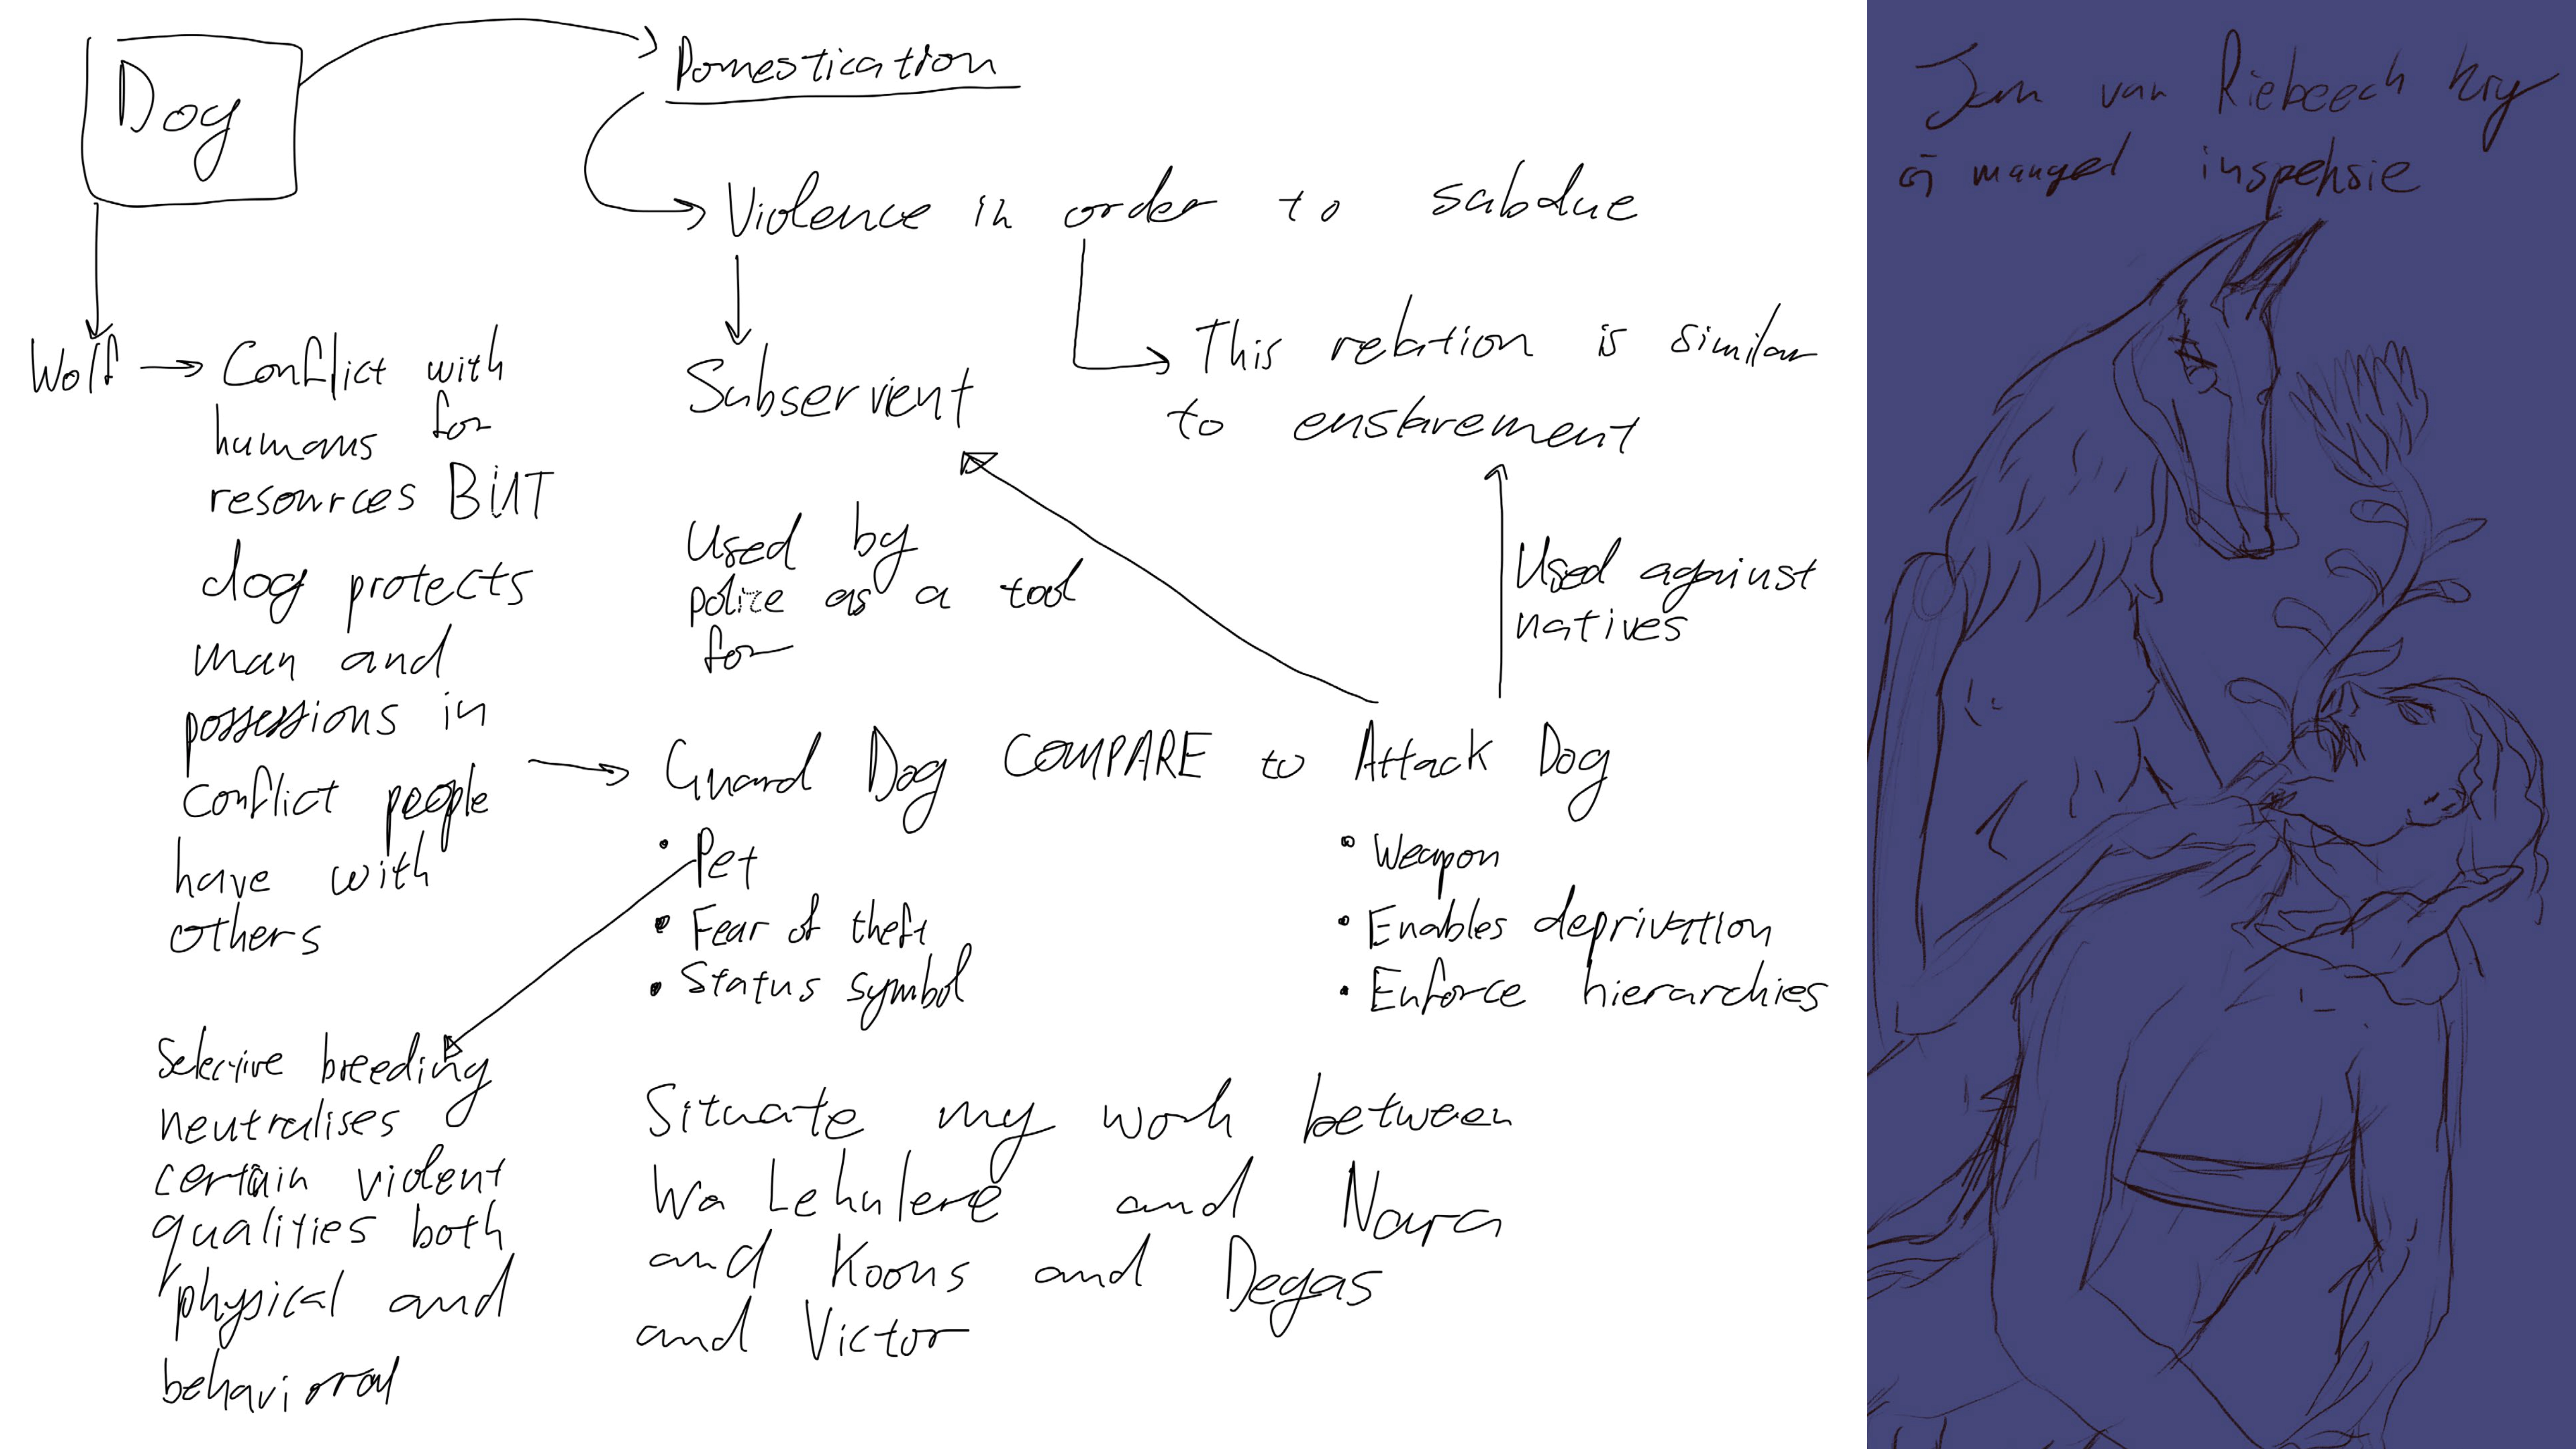 Dog
Domestication
Violence in order to subdue
Subservient
This relation is similar
to enslavement
Wolf
Conflict with
humans for
resources BUT
dog protects
man and
possessions in
conflict people
have with
others
Used by
police as a tool
for
Used against
natives
Guard Dog COMPARE to Attack Dog
• Pet
• Fear of theft
• Status symbol
• Weapon
• Enables deprivation
• Enforce hierarchies
Selective breeding
neutralises
certain violent
qualities both
physical and
behavioral
Situate my work between
Wa Lehulere and Nara
and Koons and Degas
and Victor
Jan van Riebeeck kry
'n mangel inspeksie